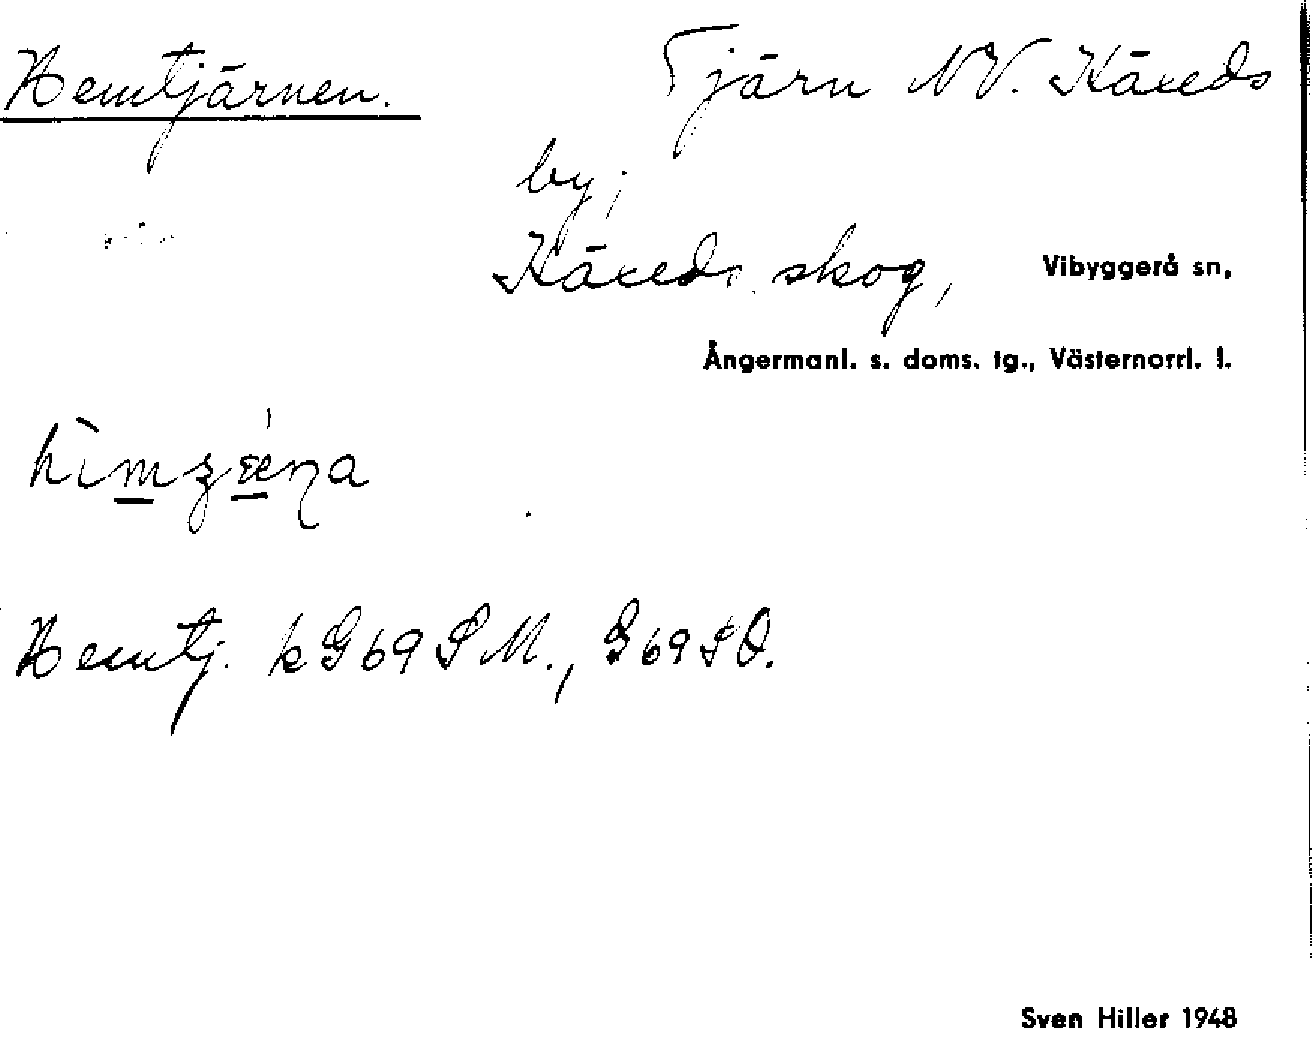 Hemtjärnen.
Tjärn NV. Käxeds
by;
Käxeds skog,
Vibyggerå sn,
Ångermanl. s. doms. tg., Västernorrl. l.
Hemtj. kG69SM., G69SO.
Sven Hiller 1948